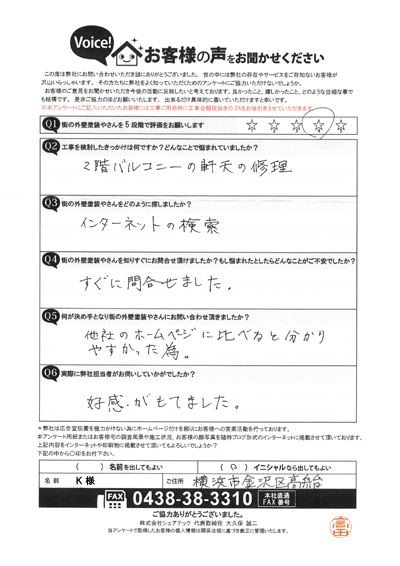 Voice!
お客様の声をお聞かせください
この度は弊社にお問い合わせいただき誠にありがとうございました。世の中には弊社の存在やサービスをご存知ないお客様が
沢山いらっしゃいます。その方たちに弊社をよく知っていただくためのアンケートにご協力いただけないでしょうか。
お客様のご意見をお聞かせいただき今後の活動に反映したいと考えております。良かったこと、嬉しかったこと、どのような些細な事で
も結構です。是非ご協力のほどお願いいたします。出来るだけ具体的に書いていただけますと幸いです。
※本アンケートにご記入いただいたお客様には工事ご用命時に工事金額税抜きの2%をお値引きさせていただきます。
Q1 街の外壁塗装やさんを5段階で評価をお願いします ☆ ☆ ☆ ☆ ☆
Q2 工事を検討したきっかけは何ですか?どんなことで悩まれていましたか?
2階バルコニーの軒天の修理
Q3 街の外壁塗装やさんをどのように探しましたか?
インターネットの検索
Q4 街の外壁塗装やさんを知りすぐにお問合せ頂けましたか?もし悩まれたとしたらどんなことがご不安でしたか?
すぐに問合せました。
Q5 何が決め手となり街の外壁塗装やさんにお問い合わせ頂きましたか?
他社のホームページに比べると分かり
やすかった為。
Q6 実際に弊社担当者がお伺いしていかがでしたか?
好感がもてました。
※弊社は広告宣伝費を極力かけない為にホームページだけを頼りにお客様への営業活動を行っております。
本アンケート用紙またはお客様宅の調査風景や施工状況、お客様の顔写真を随時ブログ形式のインターネットに掲載させて頂いております。
上記内容をインターネットや印刷物に掲載させて頂いてもよろしいでしょうか?
下記の中から○印をお付下さい。
( ) 名前を出してもよい ( ○ ) イニシャルなら出してもよい
名前 K様 ご住所 横浜市金沢区高舩台
FAX 0438-38-3310 本社直通 FAX番号
ご協力ありがとうございました。
株式会社シェアテック 代表取締役 大久保 誠二
当アンケートで取得したお客様の個人情報は関係法規に基づき厳正に管理いたします。